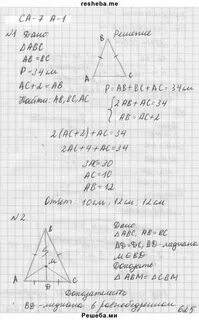 resheba.me
СА-7 А-1
№1 Дано
△ABC
AB=BC
P=34м
AC+2=AB
Найти: AB, BC, AC
Решение
B
A C
P=AB+BC+AC=34м
2AB+AC=34
AB=AC+2
2(AC+2)+AC=34
2AC+4+AC=34
3AC=30
AC=10
AB=12
Ответ 10см, 12см, 12см
№2
B
M
A D C
Дано
△ABC, AB=BC
AD=DC, BD-медиана
M∈BD
Доказать
△ABM=△CBM
Доказательство
BD-медиана в равнобедренном
Решеба.ми